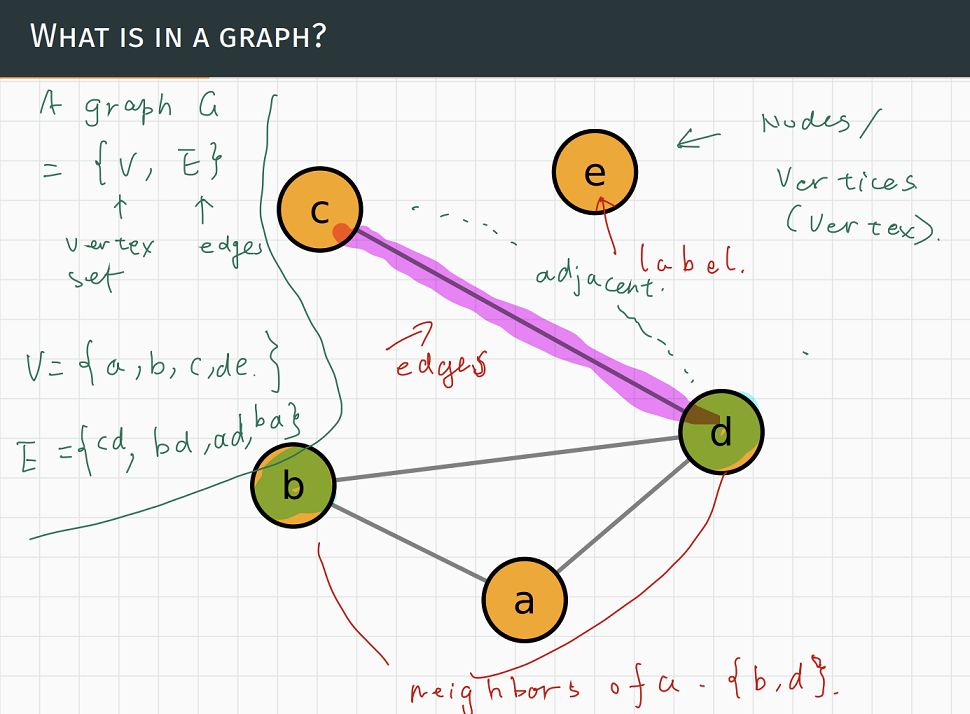 WHAT IS IN A GRAPH?
A graph G
= {V, E}
↑ ↑
vertex edges
set
V = {a, b, c, de.}
E = {cd, bd, ad, ba}
c
e
← Nodes/
Vertices
(Vertex).
label.
adjacent.
edges
d
b
a
neighbors of a - {b, d}.